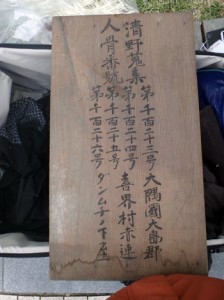 清野蒐集
人骨番號
第千百二十三号 大隅國大島郡
第千百二十四号 喜界村赤連
第千百二十五号
第千百二十六号 ダンムチノ下屋